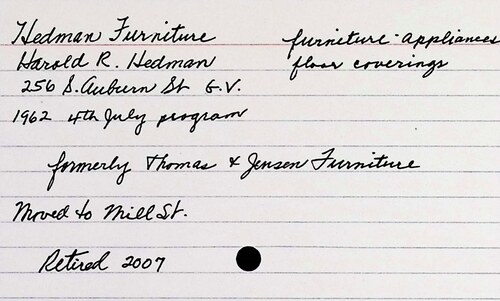 Hedman Furniture
furniture - appliances
Harold R. Hedman
floor coverings
256 S. Auburn St G.V.
1962 4th July program
formerly Thomas & Jensen Furniture
Moved to Mill St.
Retired 2007